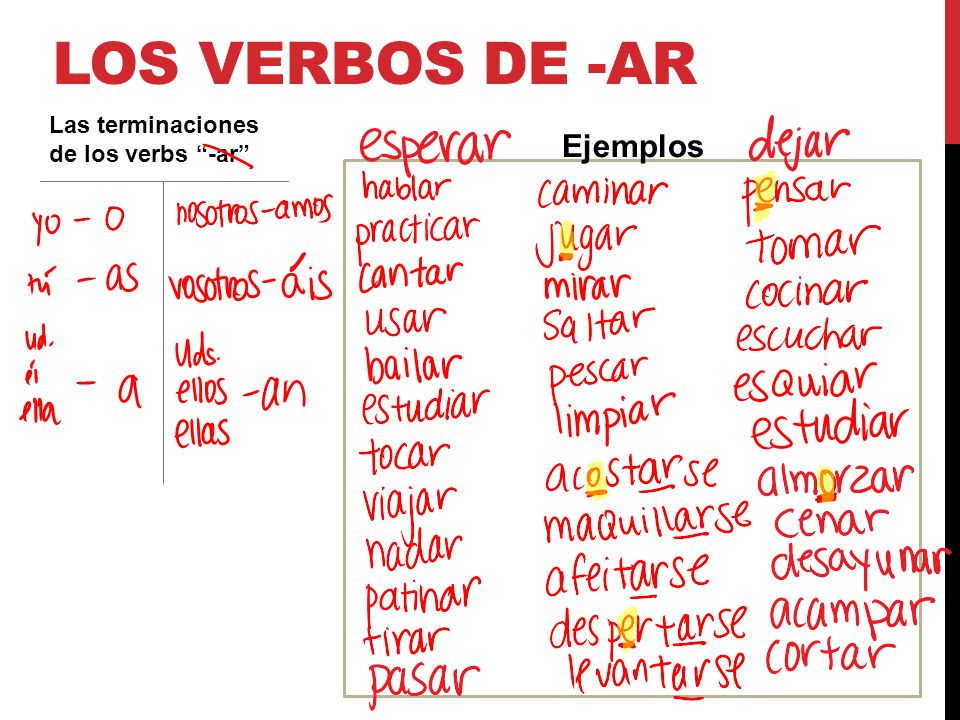 LOS VERBOS DE -AR
Las terminaciones
de los verbs “-ar”
yo - o
tú - as
ud.
él
ella
- a
nosotros - amos
vosotros - áis
Uds.
ellos
ellas
- an
Ejemplos
esperar
hablar
practicar
cantar
usar
bailar
estudiar
tocar
viajar
nadar
patinar
tirar
pasar
caminar
jugar
mirar
saltar
pescar
limpiar
acostarse
maquillarse
afeitarse
despertarse
levantarse
dejar
pensar
tomar
cocinar
escuchar
esquiar
estudiar
almorzar
cenar
desayunar
acampar
cortar